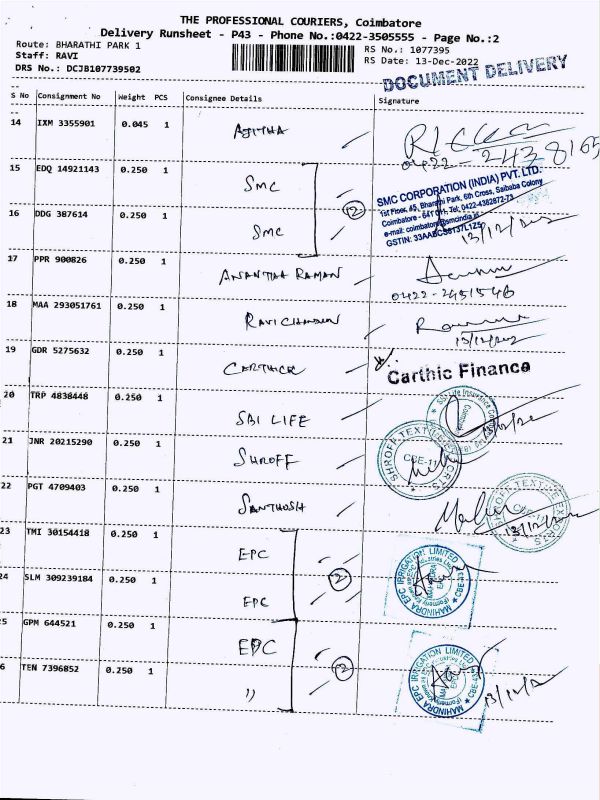 THE PROFESSIONAL COURIERS, Coimbatore
Delivery Runsheet - P43 - Phone No.:0422-3505555 - Page No.:2
Route: BHARATHI PARK 1
RS No.: 1077395
Staff: RAVI
RS Date: 13-Dec-2022
DRS No.: DCJB107739502
DOCUMENT DELIVERY
S No Consignment No Weight PCS Consignee Details Signature
14 IXM 3355901 0.045 1 AJITHA
0422-2438165
15 EDQ 14921143 0.250 1 SMC
SMC CORPORATION (INDIA) PVT. LTD.
1st Floor, 45, Bharathi Park, 6th Cross, Saibaba Colony
Coimbatore - 641 011, Tel: 0422-4382872-73
16 DDG 387614 0.250 1 SMC 2
13/12/2022
17 PPR 900826 0.250 1 ANANTHA RAMAN
0422-2451546
18 MAA 293051761 0.250 1 RAVICHANDRAN
13/12/2022
19 GDR 5275632 0.250 1 CARTHICK
Carthic Finance
20 TRP 4838448 0.250 1 SBI LIFE
21 JNR 20215290 0.250 1 SHROFF
SHROFF TEXTILE EXPORTS
CBE-11
22 PGT 4709403 0.250 1 SANTHOSH
SHROFF TEXTILE EXPORTS
13/12/22
23 TMI 30154418 0.250 1 EPC
MAHINDRA EPC IRRIGATION LIMITED
24 SLM 309239184 0.250 1 EPC 2
5 GPM 644521 0.250 1 EPC
MAHINDRA EPC IRRIGATION LIMITED
6 TEN 7396852 0.250 1 " 2
13/12/2